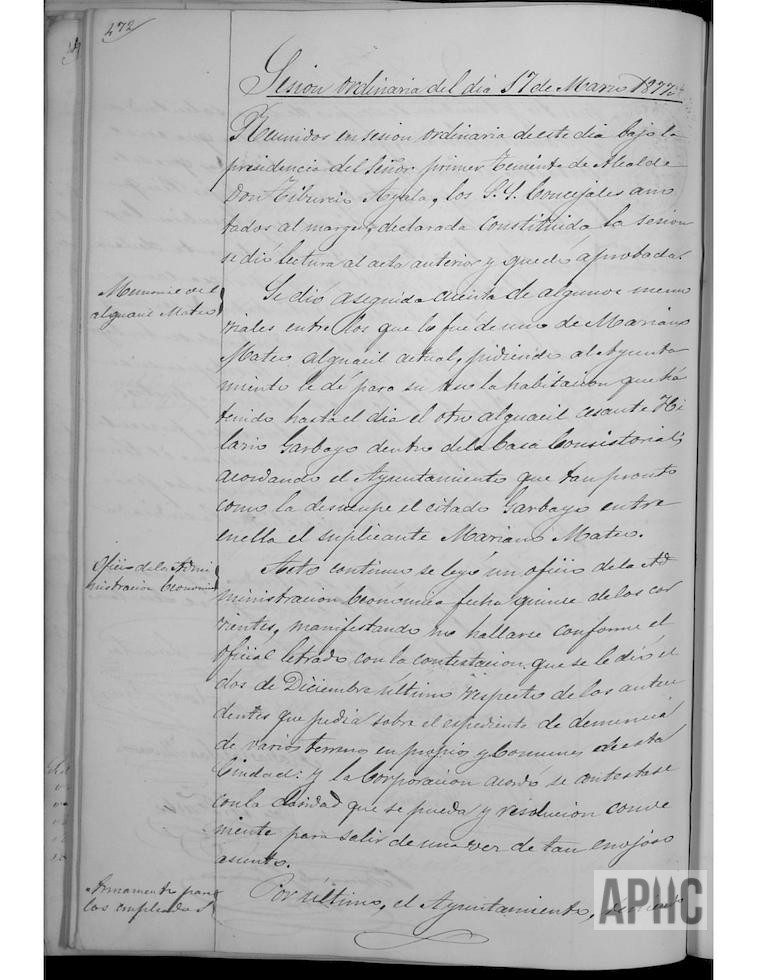 472
Sesion ordinaria del dia 17 de Marzo 1877.
Reunidos en sesion ordinaria de este dia bajo la
presidencia del Señor primer Teniente de Alcalde
Don Tiburcio Ayala, los S.S. Concejales ano
tados al margen, declarada constituida la sesion
se dió lectura al acta anterior y quedó aprobada.
Memorial del
alguacil Mateo
Se dió aseguida cuenta de algunos memo
riales entre los que lo fué de uno de Mariano
Mateo alguacil actual, pidiendo al Ayunta
miento le dé para su uso la habitacion que há
tenido hasta el dia el otro alguacil cesante Hi
lario Garbayo dentro de la Casa Consistorial;
acordando el Ayuntamiento que tan pronto
como la desocupe el citado Garbayo entre
en ella el suplicante Mariano Mateo.
Oficio de la Admi
nistracion Economica
Acto continuo se leyó un oficio de la Ad
ministracion Económica fecha quince de los cor
rientes, manifestando no hallarse conforme el
Oficial letrado con la contestacion que se le dió el
dos de Diciembre último respecto de los antece
dentes que pedia sobre el espediente de denuncia
de varios terrenos en propios y Comunes de esta
Ciudad: y la Corporacion acordó se contestase
con la claridad que se pueda y resolucion conve
niente para salir de una vez de tan enojoso
asunto.
Armamento para
los empleados
Por último, el Ayuntamiento,
APHC